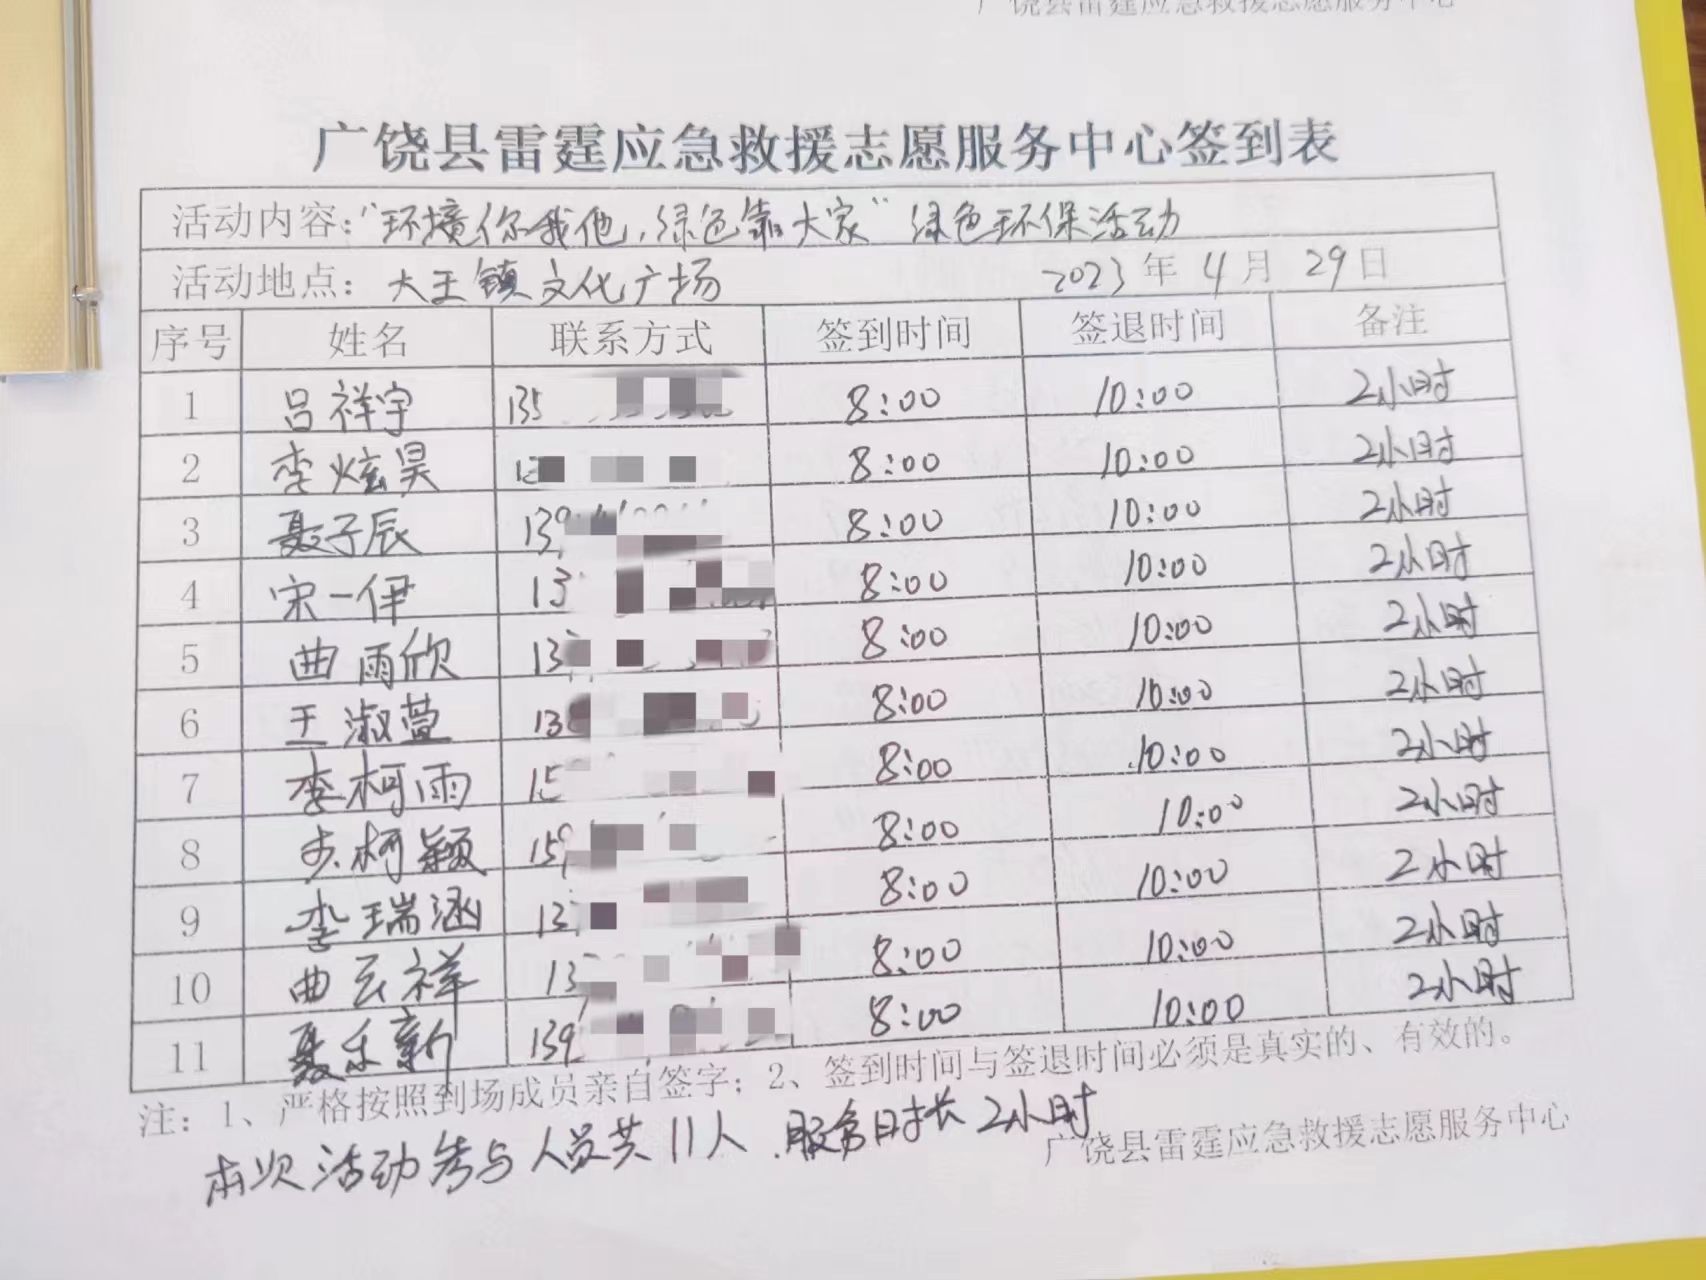 广饶县雷霆应急救援志愿服务中心
广饶县雷霆应急救援志愿服务中心签到表
活动内容:“环境你我他,绿色靠大家”绿色环保活动
活动地点: 大王镇文化广场 2023年 4月 29日
序号 姓名 联系方式 签到时间 签退时间 备注
1 吕祥宇 135 8:00 10:00 2小时
2 李炫昊 8:00 10:00 2小时
3 聂子辰 139 8:00 10:00 2小时
4 宋一伊 13 8:00 10:00 2小时
5 曲雨欣 13 8:00 10:00 2小时
6 王淑萱 13 8:00 10:00 2小时
7 李柯雨 15 8:00 10:00 2小时
8 柯颖 159 8:00 10:00 2小时
9 李瑞涵 13 8:00 10:00 2小时
10 曲云祥 13 8:00 10:00 2小时
11 聂乐新 139 8:00 10:00 2小时
注: 1、严格按照到场成员亲自签字; 2、签到时间与签退时间必须是真实的、有效的。
本次活动参与人员共11人.服务时长2小时
广饶县雷霆应急救援志愿服务中心